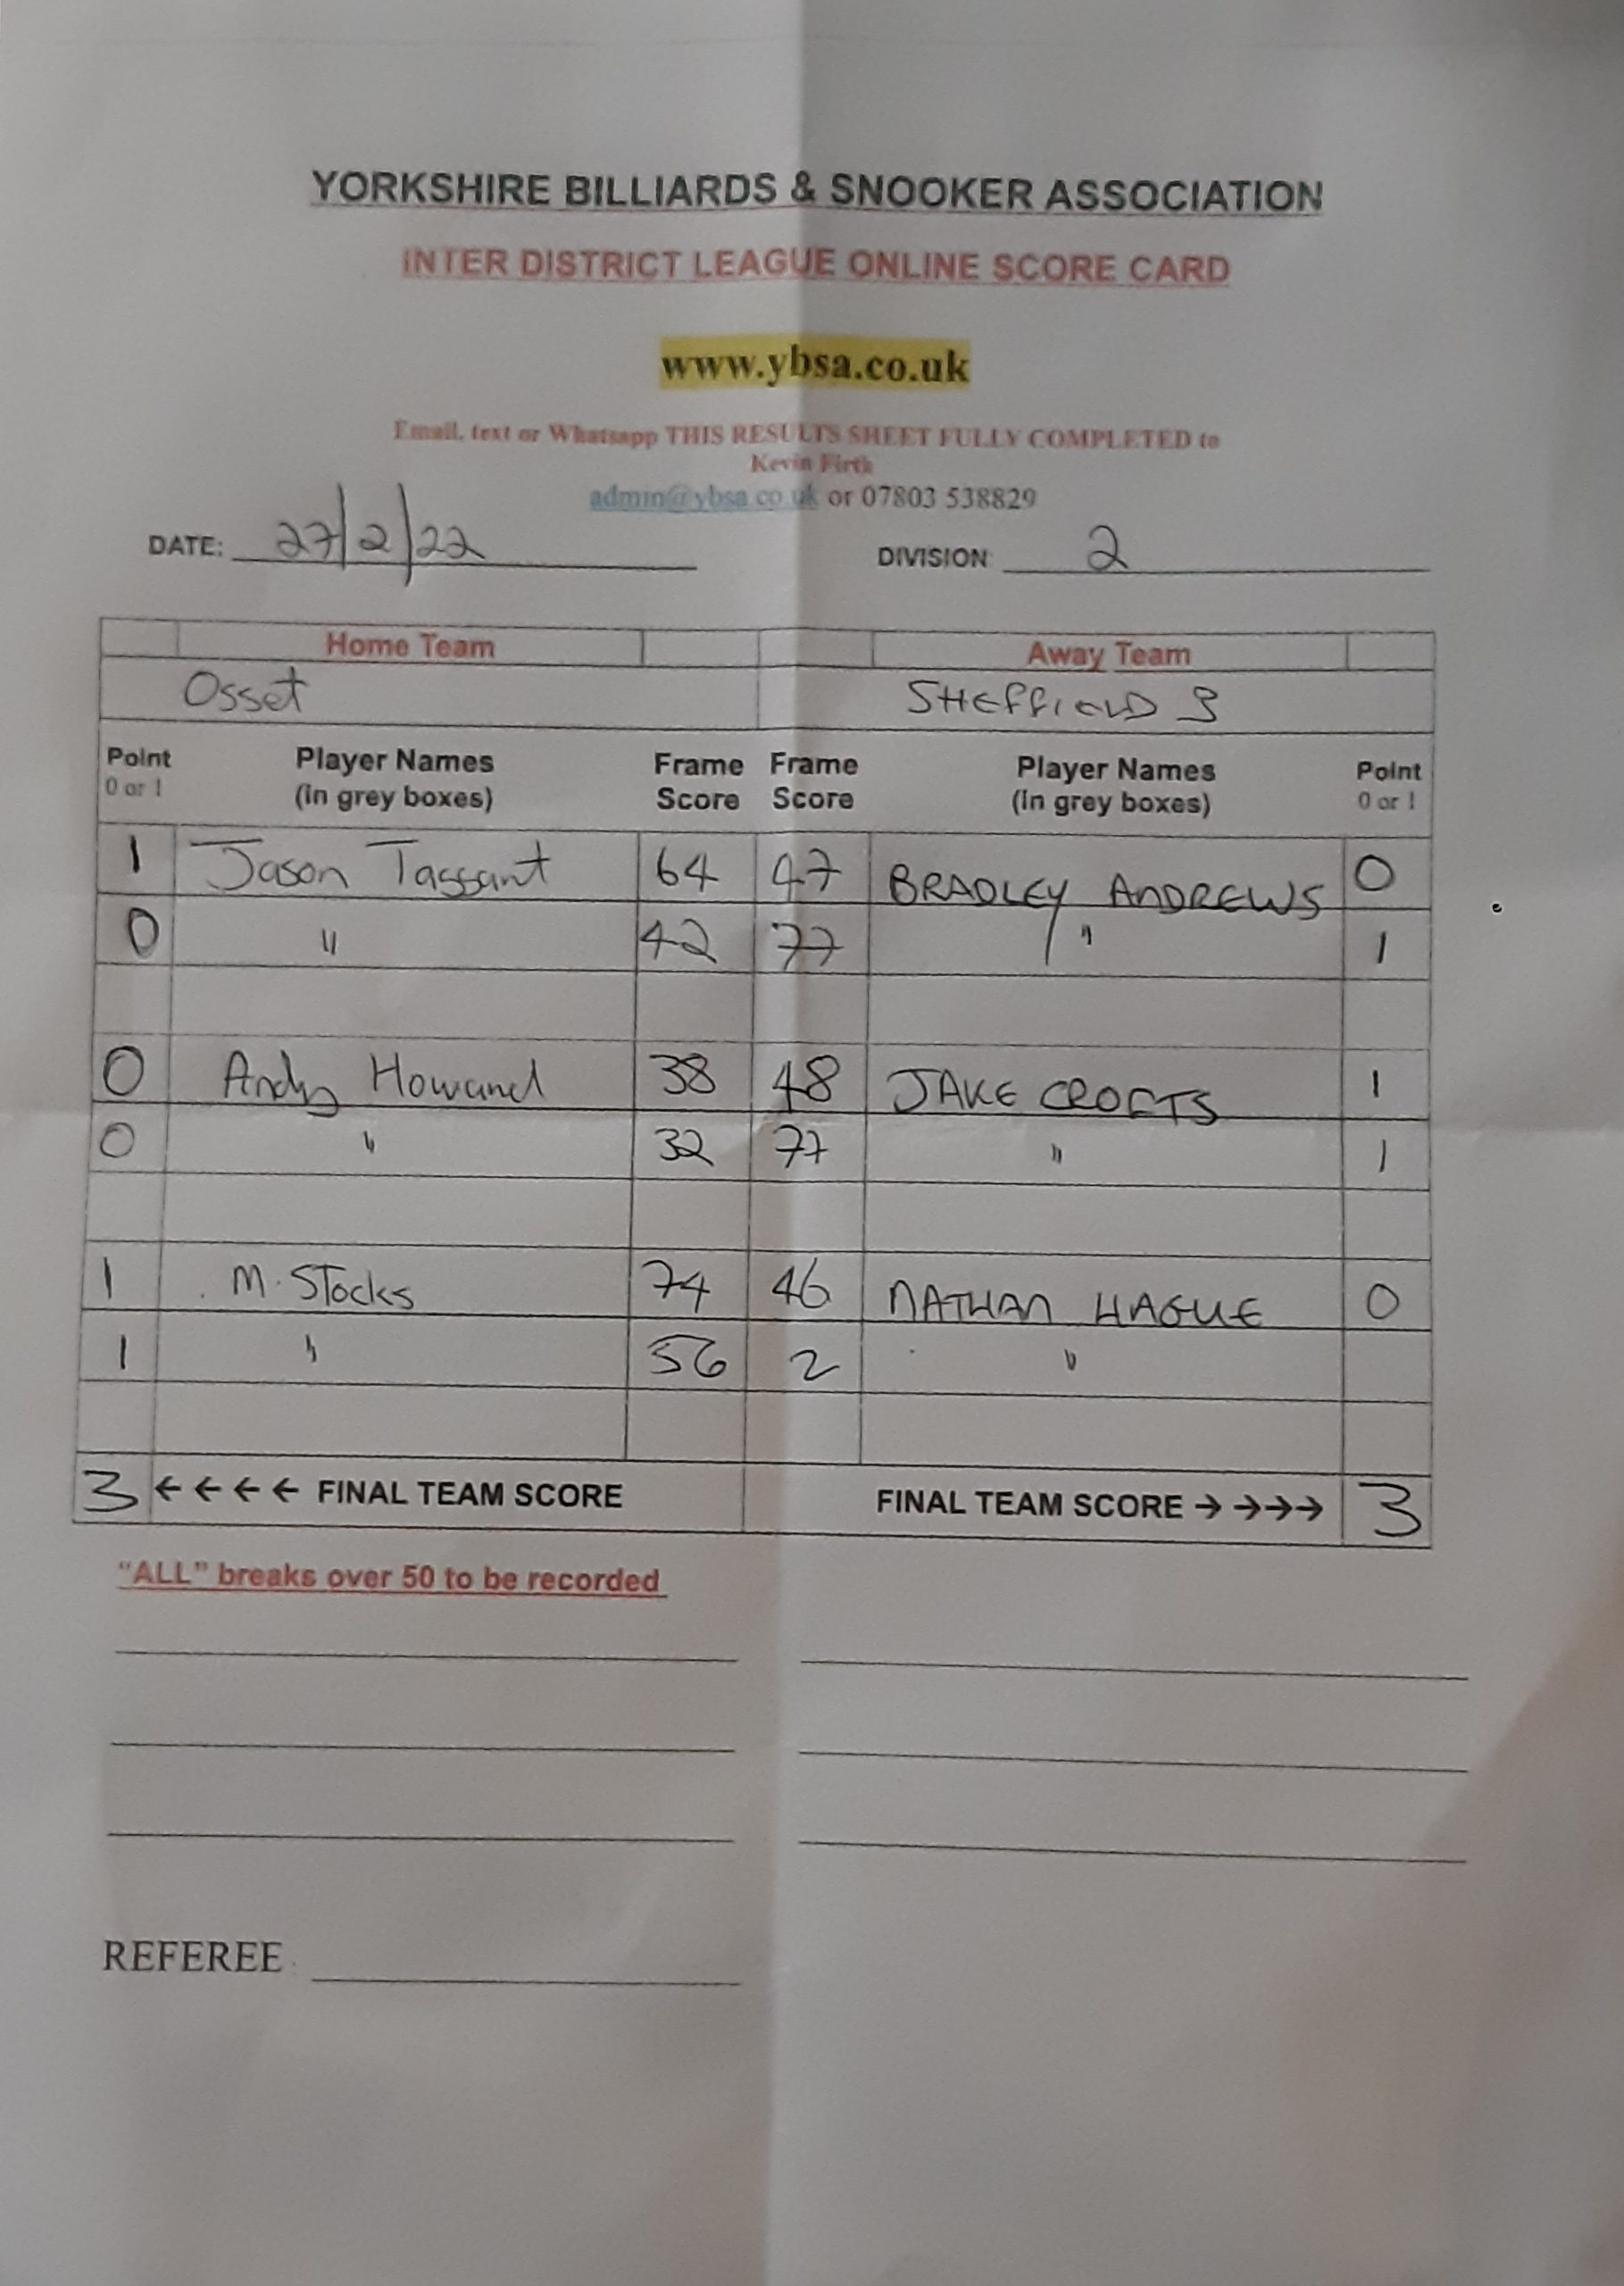 YORKSHIRE BILLIARDS & SNOOKER ASSOCIATION
INTER DISTRICT LEAGUE ONLINE SCORE CARD
www.ybsa.co.uk
Email, text or Whatsapp THIS RESULTS SHEET FULLY COMPLETED to
Kevin Firth
admin@ybsa.co.uk or 07803 538829
DATE: 27/2/22 DIVISION: 2
Home Team Away Team
Osset SHEFFIELD 3
Point Player Names Frame Frame Player Names Point
0 or 1 (in grey boxes) Score Score (in grey boxes) 0 or 1
1 Jason Tassant 64 47 BRADLEY ANDREWS 0
0 " 42 77 " 1
0 Andy Howard 38 48 JAKE CROFTS 1
0 " 32 77 " 1
1 M. Stocks 74 46 NATHAN HAGUE 0
1 " 56 2 "
3 ←←←← FINAL TEAM SCORE FINAL TEAM SCORE →→→→ 3
"ALL" breaks over 50 to be recorded
REFEREE